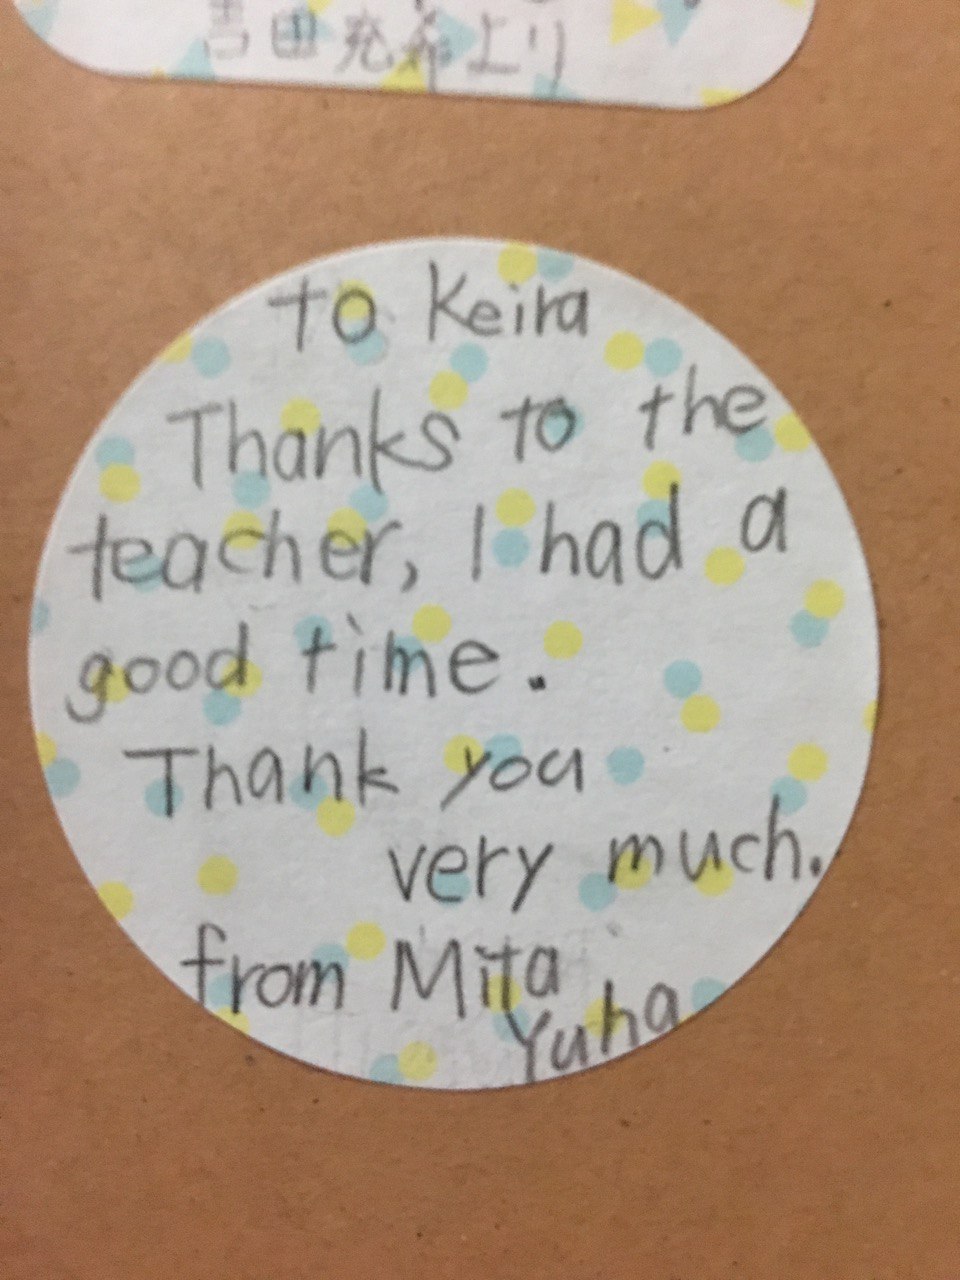 吉田充希より
To Keira
Thanks to the
teacher, I had a
good time.
Thank you
very much.
from Mita
Yuha